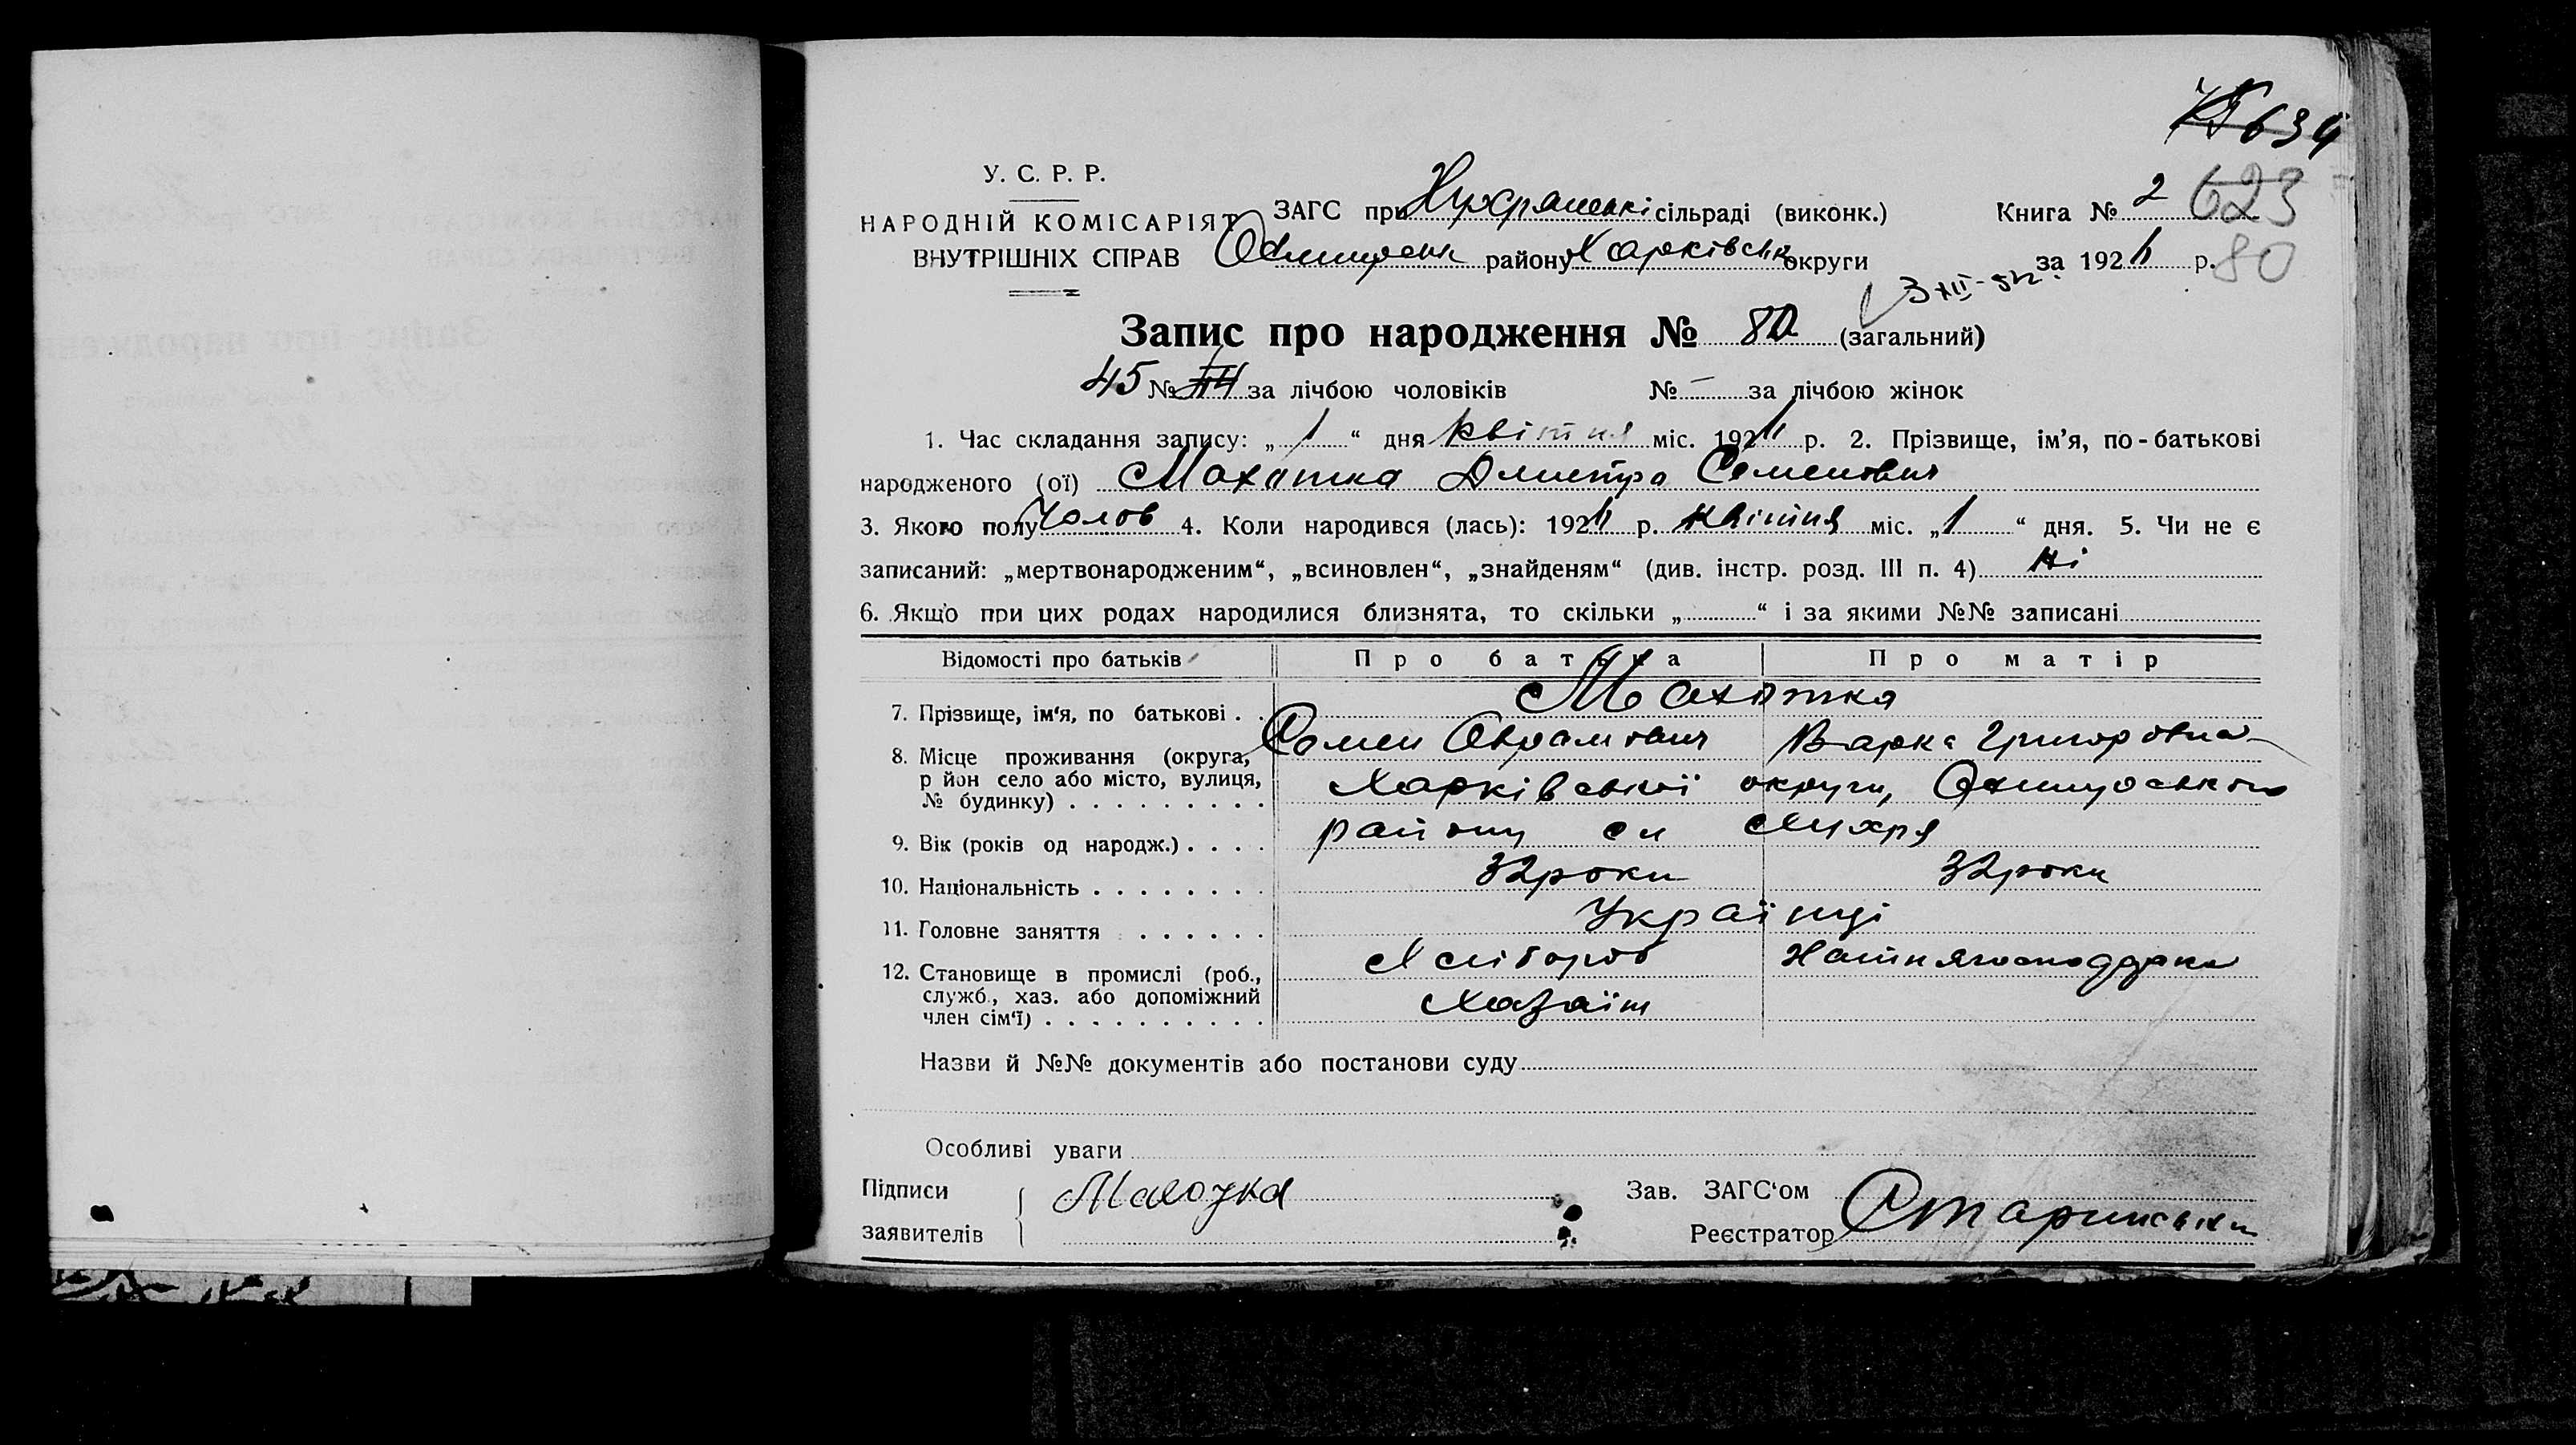 634
У. С. Р. Р.
НАРОДНІЙ КОМІСАРІЯТ
ВНУТРІШНІХ СПРАВ
ЗАГС при сільраді (виконк.)
Книга № 2 623
району Харківськ округи
за 192 р. 80
Запис про народження № 80 (загальний)
45 № за лічбою чоловіків № — за лічбою жінок
1. Час складання запису: „ 1 “ дня квітня міс. 192 р. 2. Прізвище, ім’я, по-батькові
народженого (ої) Махотка Дмитро Семенович
3. Якого полу Чолов 4. Коли народився (лась): 192 р. квітня міс. „ 1 “ дня. 5. Чи не є
записаний: „мертвонародженим“, „всиновлен“, „знайденям“ (див. інстр. розд. III п. 4) ні
6. Якщо при цих родах народилися близнята, то скільки „ “ і за якими №№ записані
Відомості про батьків Про батька Про матір
7. Прізвище, ім‘я, по батькові . . Махотка
Семен Аврамович Варка Григоровна
8. Місце проживання (округа,
р йон село або місто, вулиця,
№ будинку) . . . . . . . . . Харківської округи,
району
9. Вік (років од народж.) . . . .
32 роки 32 роки
10. Національність . . . . . . .
Українці
11. Головне заняття . . . . . .
Хлібороб
12. Становище в промислі (роб.,
служб., хаз. або допоміжний
член сім‘ї) . . . . . . . . . .
Хазаїн
Назви й №№ документів або постанови суду
Особливі уваги
Підписи
заявителів
Махотка
Зав. ЗАГС‘ом
Реєстратор